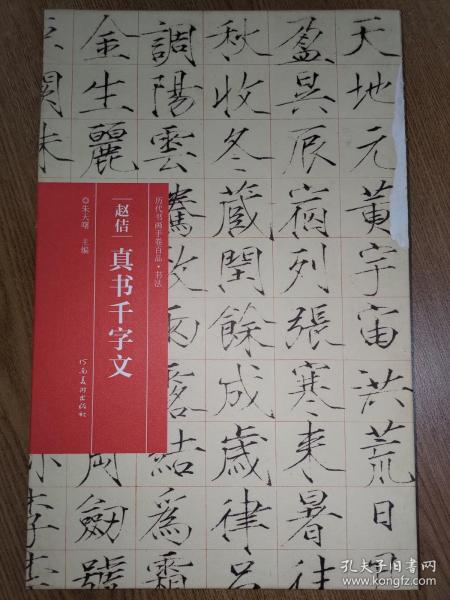 天地元黄宇宙洪荒日月
盈昃辰宿列張寒来暑往
秋收冬藏閏餘成歲律吕
調陽雲騰致雨露結為霜
金生麗
岡劍號
巨闕珠
历代书画手卷百品·书法
赵佶 真书千字文
◎朱天曙 主编
河南美术出版社
孔夫子旧书网
www.kongfz.com